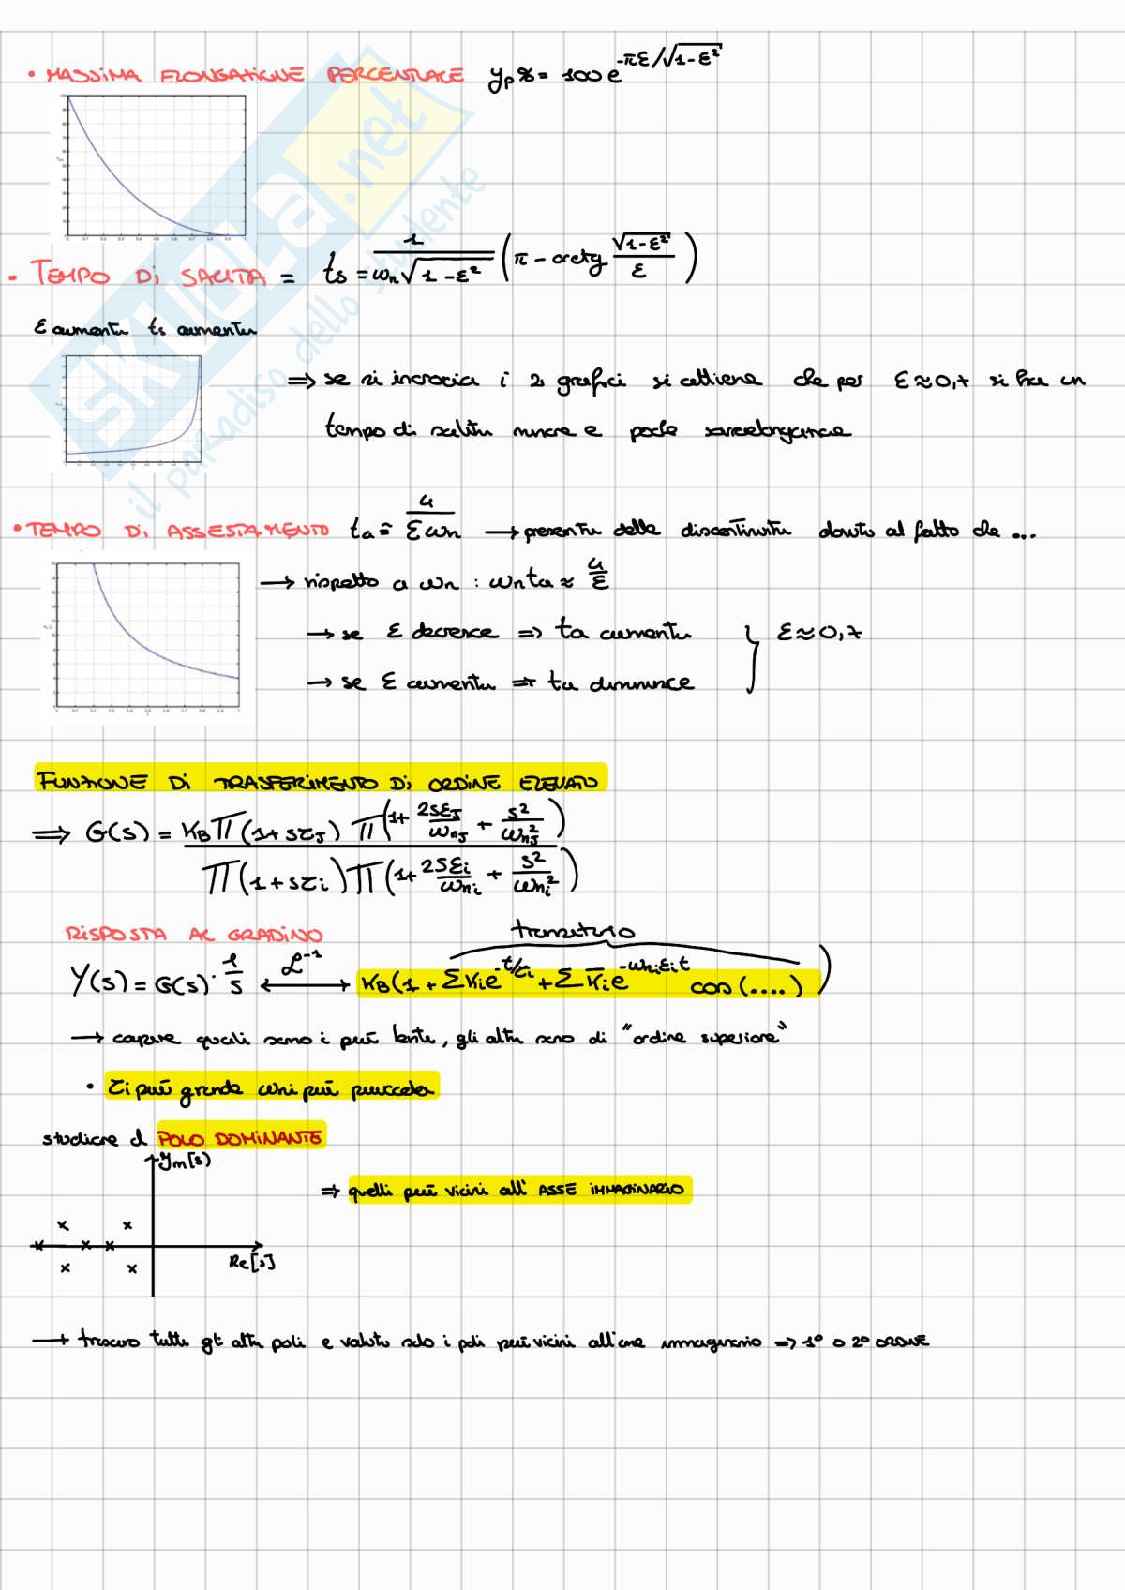 • MASSIMA ELONGAZIONE PERCENTUALE yp% = 100 e^(-πε/√(1-ε²))
- TEMPO Di SALITA = ts = 1/(ωn√(1-ε²)) (π - arctg √(1-ε²)/ε)
ε aumenta ts aumenta
⇒ se si incrocia i 2 grafici si ottiene che per ε≈0,7 si ha un
tempo di salita minore e poche sovraelongazione
• TEMPO Di ASSESTAMENTO ta = 4/(εωn) → presenta delle discontinuità dovute al fatto che ...
→ rispetto a ωn : ωn ta ≈ 4/ε
→ se ε decresce ⇒ ta aumenta } ε≈0,7
→ se ε aumenta ⇒ ta diminuisce
FUNZIONE Di TRASFERIMENTO Di ORDINE ELEVATO
⇒ G(s) = KB Π(1+sτj) Π(1+ 2sεj/ωnj + s²/ωnj²) / Π(1+sτi) Π(1+ 2sεi/ωni + s²/ωni²)
RISPOSTA AL GRADINO
transitorio
Y(s) = G(s) · 1/s ⟷ ℒ⁻¹ KB(1 + ΣKie^(-t/τi) + ΣK̅ie^(-ωniεit) cos(....))
→ capire quali sono i più lenti, gli altri sono di "ordine superiore"
• τi più grande ωni più piccolo
studiare il POLO DOMINANTE
Im[s]
⇒ quelli più vicini all' ASSE IMMAGINARIO
Re[s]
→ trascuro tutti gli altri poli e valuto solo i poli più vicini all'asse immaginario → 1° o 2° ORDINE
SKUOLA.net
il paradiso dello studente